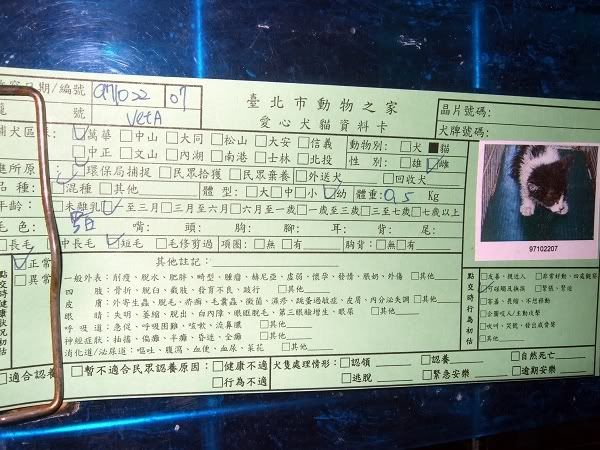 臺北市動物之家
愛心犬貓資料卡
日期/編號 971022 07
號 VetA
晶片號碼:
犬牌號碼:
捕犬區 萬華 □中山 □大同 □松山 □大安 □信義
□中正 □文山 □內湖 □南港 □士林 □北投
動物別: □犬 ■貓
性別: □雄 雌
所原: □環保局捕捉 □民眾拾獲 □民眾棄養 □外送犬 □回收犬
品種: 混種 □其他 體型: □大 □中 □小 幼 體重: 0.5 Kg
年齡: 未離乳 至三月 □三月至六月 □六月至一歲 □一歲至三歲 □三至七歲 □七歲以上
毛色: 嘴: 頭: 腳: 耳: 背: 尾:
□長毛 □中長毛 短毛 □毛修剪過 項圈: □無 □有 胸背: □無 □有
97102207
點交時健康狀況初估
正常
□異常
其他註記:
一般外表: 削瘦、脫水、肥胖、畸型、腫瘤、赫尼亞、虛弱、懷孕、發情、脹奶、外傷 □其他
四肢: 骨折、脫臼、截肢、發育不良、跛行 □其他
皮膚: 外寄生蟲、脫毛、疥癬、毛囊蟲、黴菌、濕疹、跳蚤過敏症、皮屑、內分泌失調 □其他
眼睛: 失明、萎縮、脫出、白內障、眼瞼脫毛、第三眼瞼增生、眼屎 □其他
呼吸道: 急促、呼吸困難、咳嗽、流鼻膿 □其他
神經症狀: 抽搐、偏癱、半癱、昏迷、全癱 □其他
消化道/泌尿道: 嘔吐、腹瀉、血便、血尿、菜花 □其他
點交時行為初估
□友善、親近人 □非常好動、四處觀察
可碰觸及撫摸 □緊張、緊迫
□害羞、畏縮、不想移動
□公關咬人/主動攻擊
□吠叫、哭號、發出威脅聲
□其他
適合認養
□暫不適合民眾認養原因: □健康不適
□行為不適
犬隻處理情形: □認領 □認養 □自然死亡
□逃脫 □緊急安樂 □逾期安樂